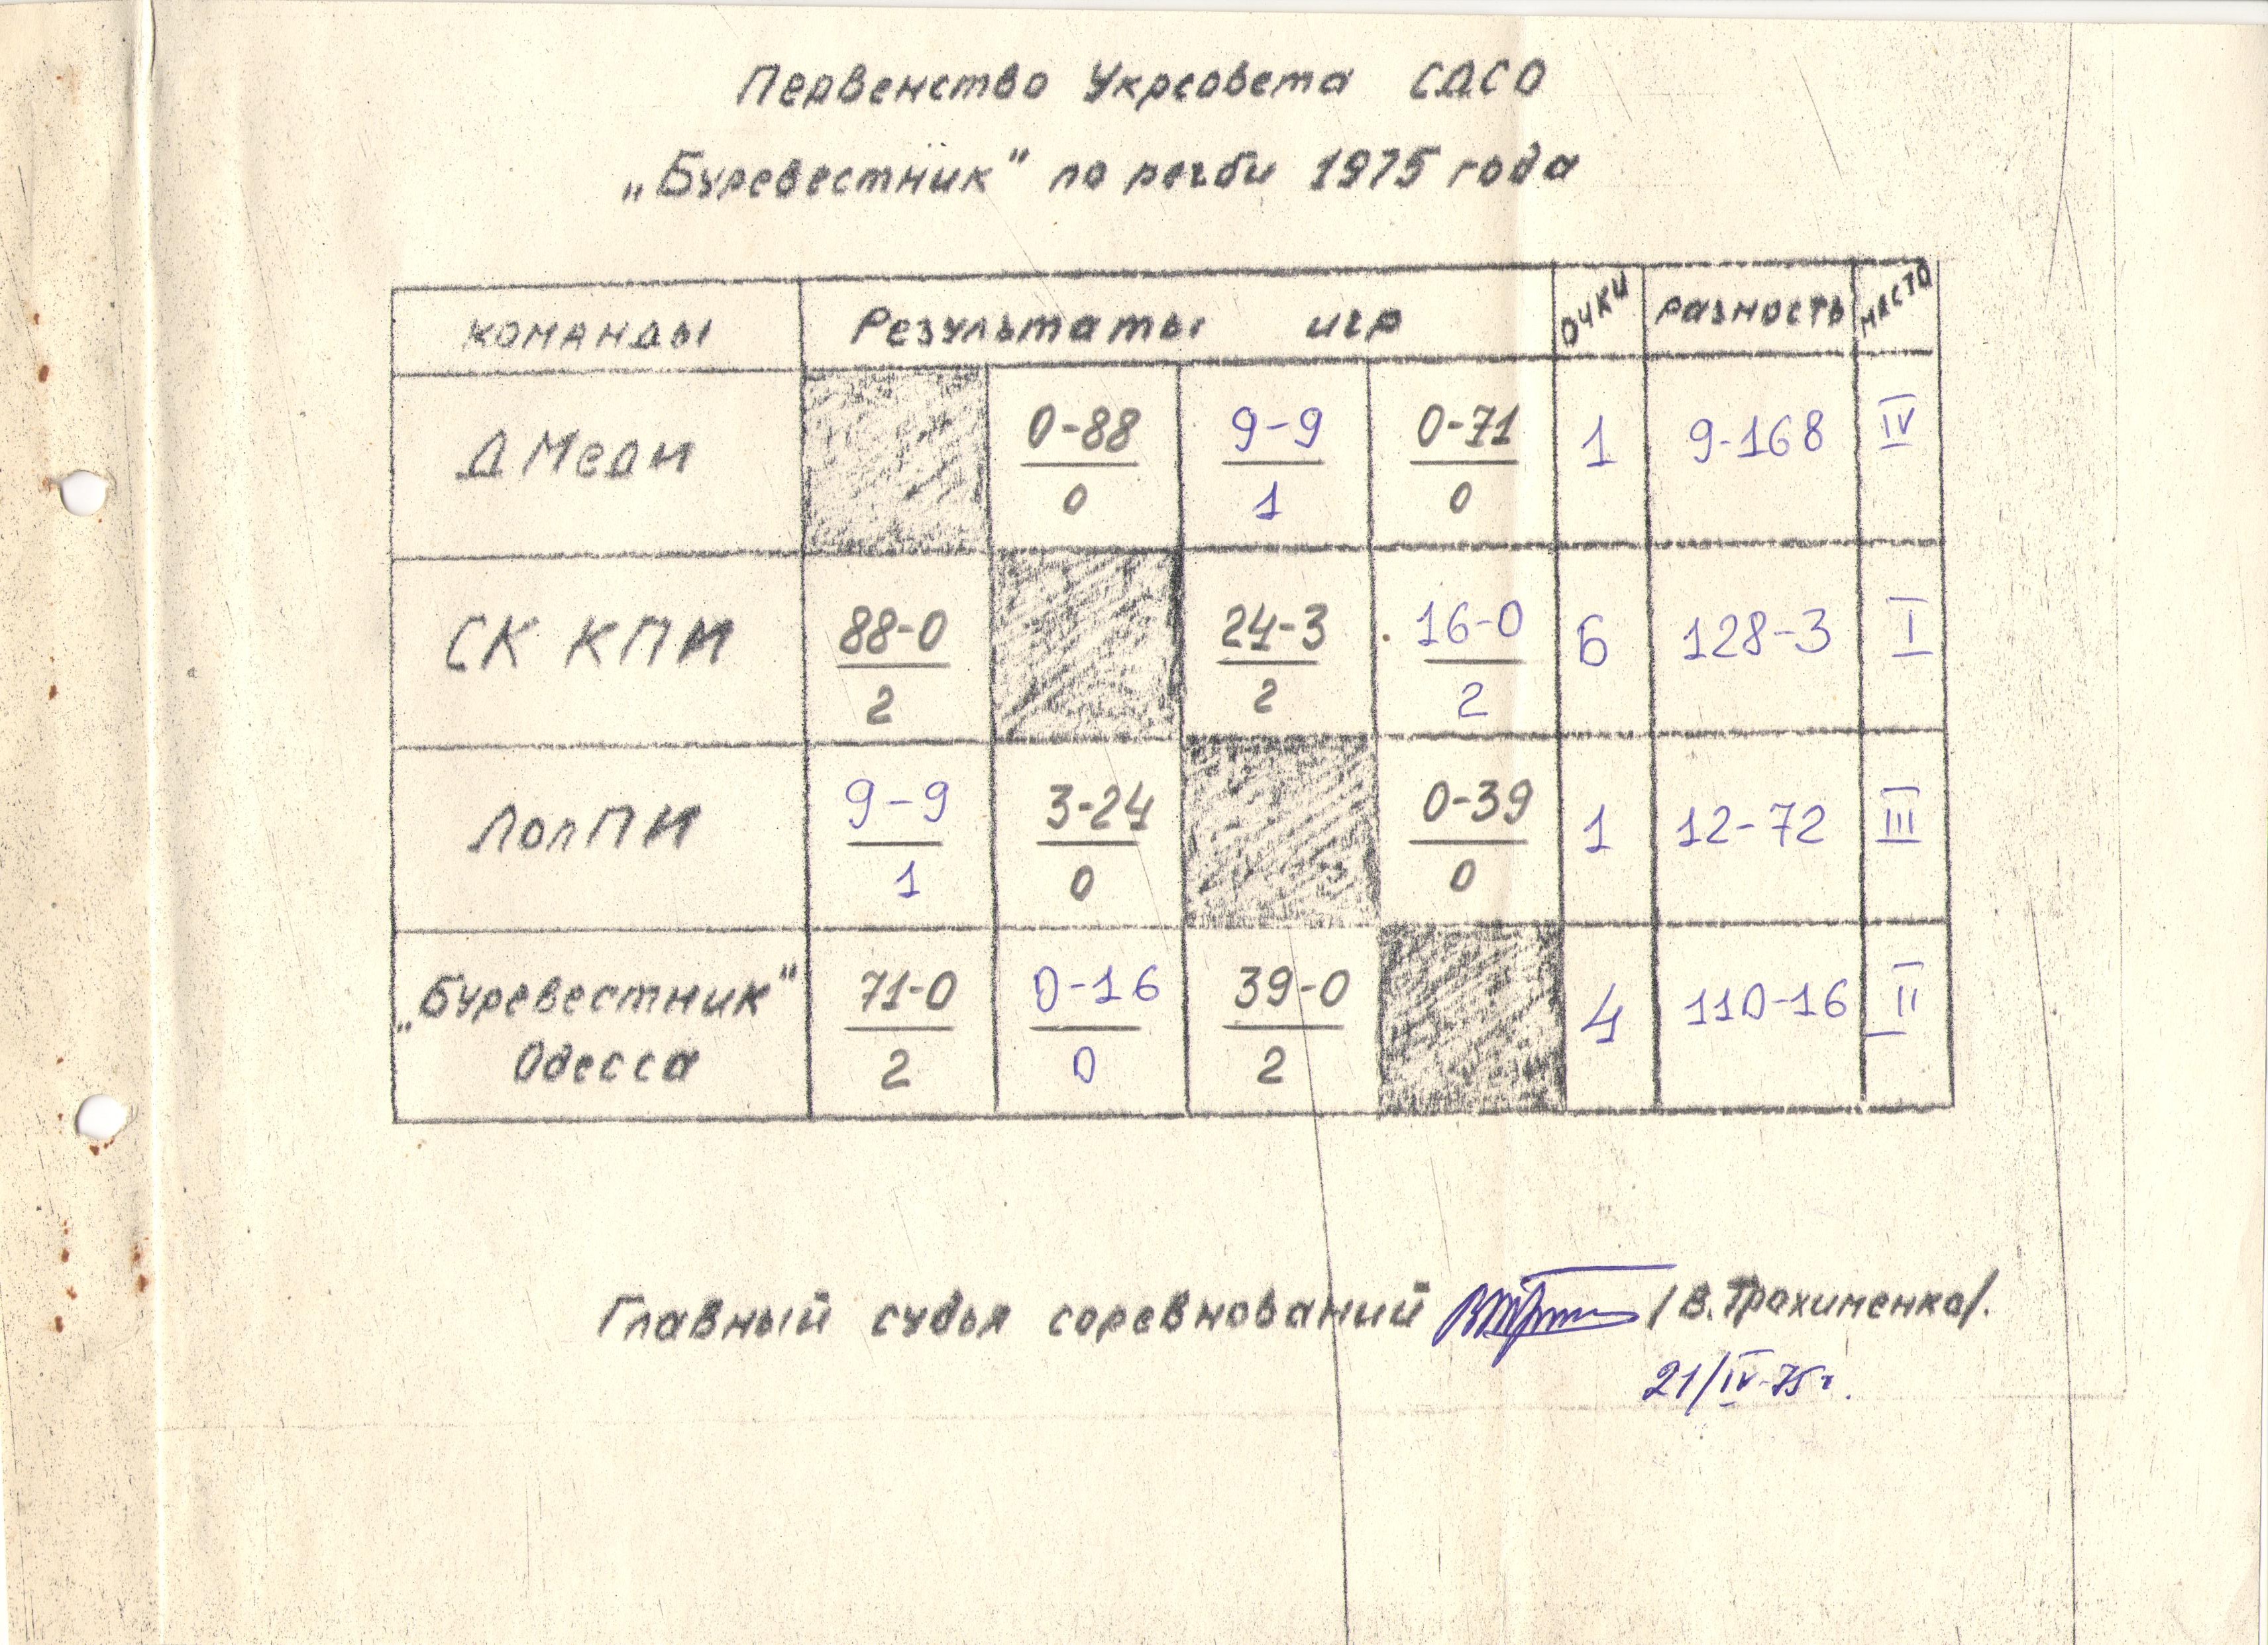 Первенство Укрсовета СДСО
„Буревестник" по регби 1975 года
команды Результаты игр очки разность место
ДМеди 0-88 9-9 0-71 1 9-168 IV
0 1 0
СК КПИ 88-0 24-3 16-0 6 128-3 I
2 2 2
ПолПИ 9-9 3-24 0-39 1 12-72 III
1 0 0
„Буревестник" 71-0 0-16 39-0 4 110-16 II
Одесса 2 0 2
Главный судья соревнований /В. Трохименко/.
21/IV-75г.